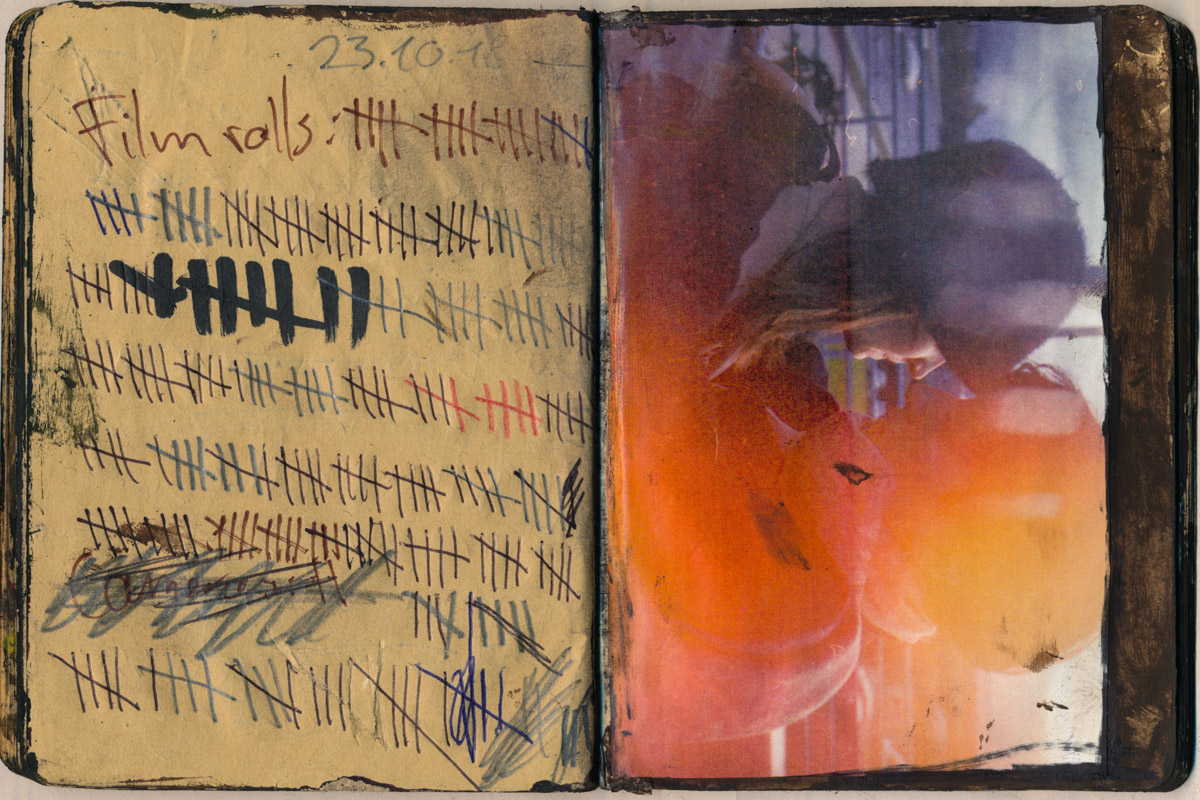 23.10.18
Film rolls: